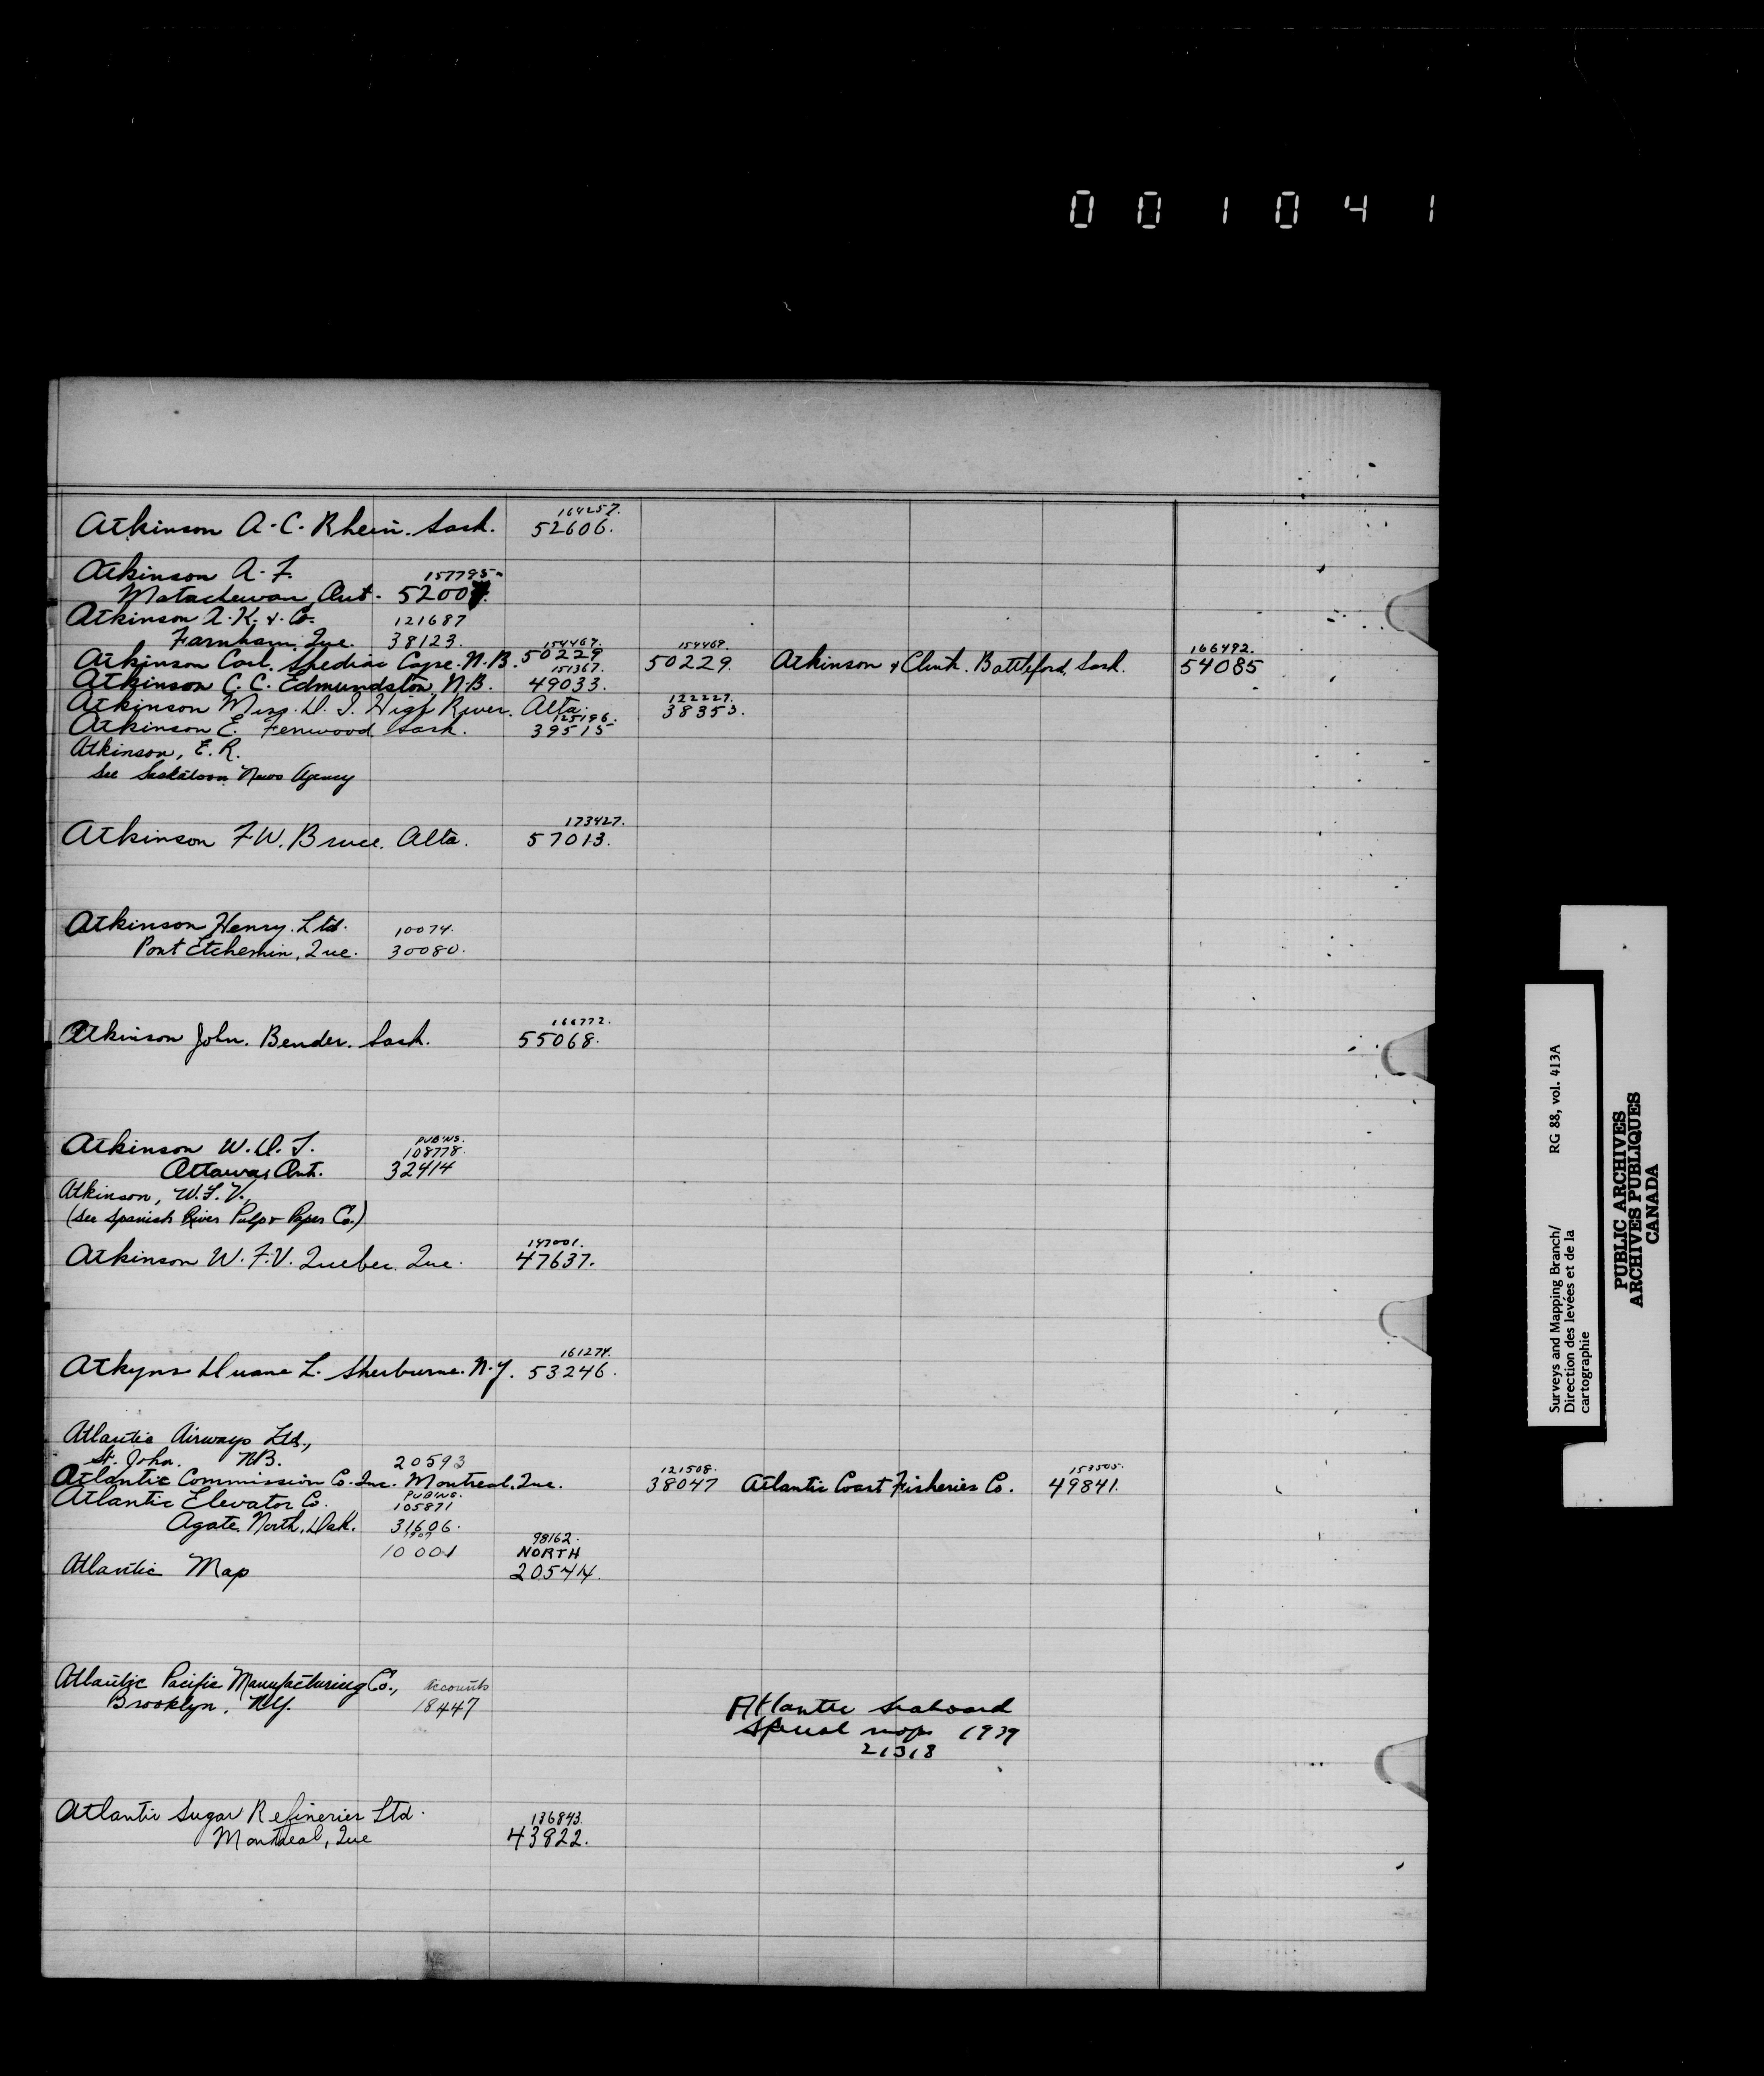 001041
Atkinson A. C. Rhein. Sask. 164257. 52606.
Atkinson A. F. 157795
Matachewan, Ont. 5200
Atkinson A. K. & Co. 121687
Farnham, Que. 38123.
Atkinson Carl. Shediac Cape. N.B. 154469. 50229 154469. 50229. Atkinson & Clink. Battleford, Sask. 166492. 54085
Atkinson C. C. Edmundston, N.B. 151367. 49033.
Atkinson Miss. D. I. High River. Alta. 122227. 38353.
Atkinson E. Fenwood Sask. 125196. 39515
Atkinson, E. R.
See Saskatoon News Agency
Atkinson F. W. Bruce. Alta. 173427. 57013.
Atkinson Henry. Ltd. 10074.
Pont Etchemin, Que. 30080.
Atkinson John. Bender. Sask. 166772. 55068.
Atkinson W. D. T. PUB'NS. 108778.
Ottawa, Ont. 32414
Atkinson, W. F. V.
(See Spanish River Pulp & Paper Co.)
Atkinson W. F. V. Quebec. Que. 147001. 47637.
Atkyns Duane L. Sherburne. N.Y. 161274. 53246.
Atlantic Airways Ltd.,
St. John. N.B. 20593
Atlantic Commission Co. Inc. Montreal, Que. 121508. 38047 Atlantic Coast Fisheries Co. 153505. 49841.
Atlantic Elevator Co. PUB'NS. 105871
Agate. North. Dak. 31606.
Atlantic Map 10001 98162. NORTH 20544.
Atlantic Pacific Manufacturing Co., Accounts
Brooklyn, N.Y. 18447
Atlantic Seaboard
Special map 1939
21318
Atlantic Sugar Refineries Ltd.
Montreal, Que 136843. 43822.
Surveys and Mapping Branch/ RG 88, vol. 413A
Direction des levées et de la
cartographie
PUBLIC ARCHIVES
ARCHIVES PUBLIQUES
CANADA